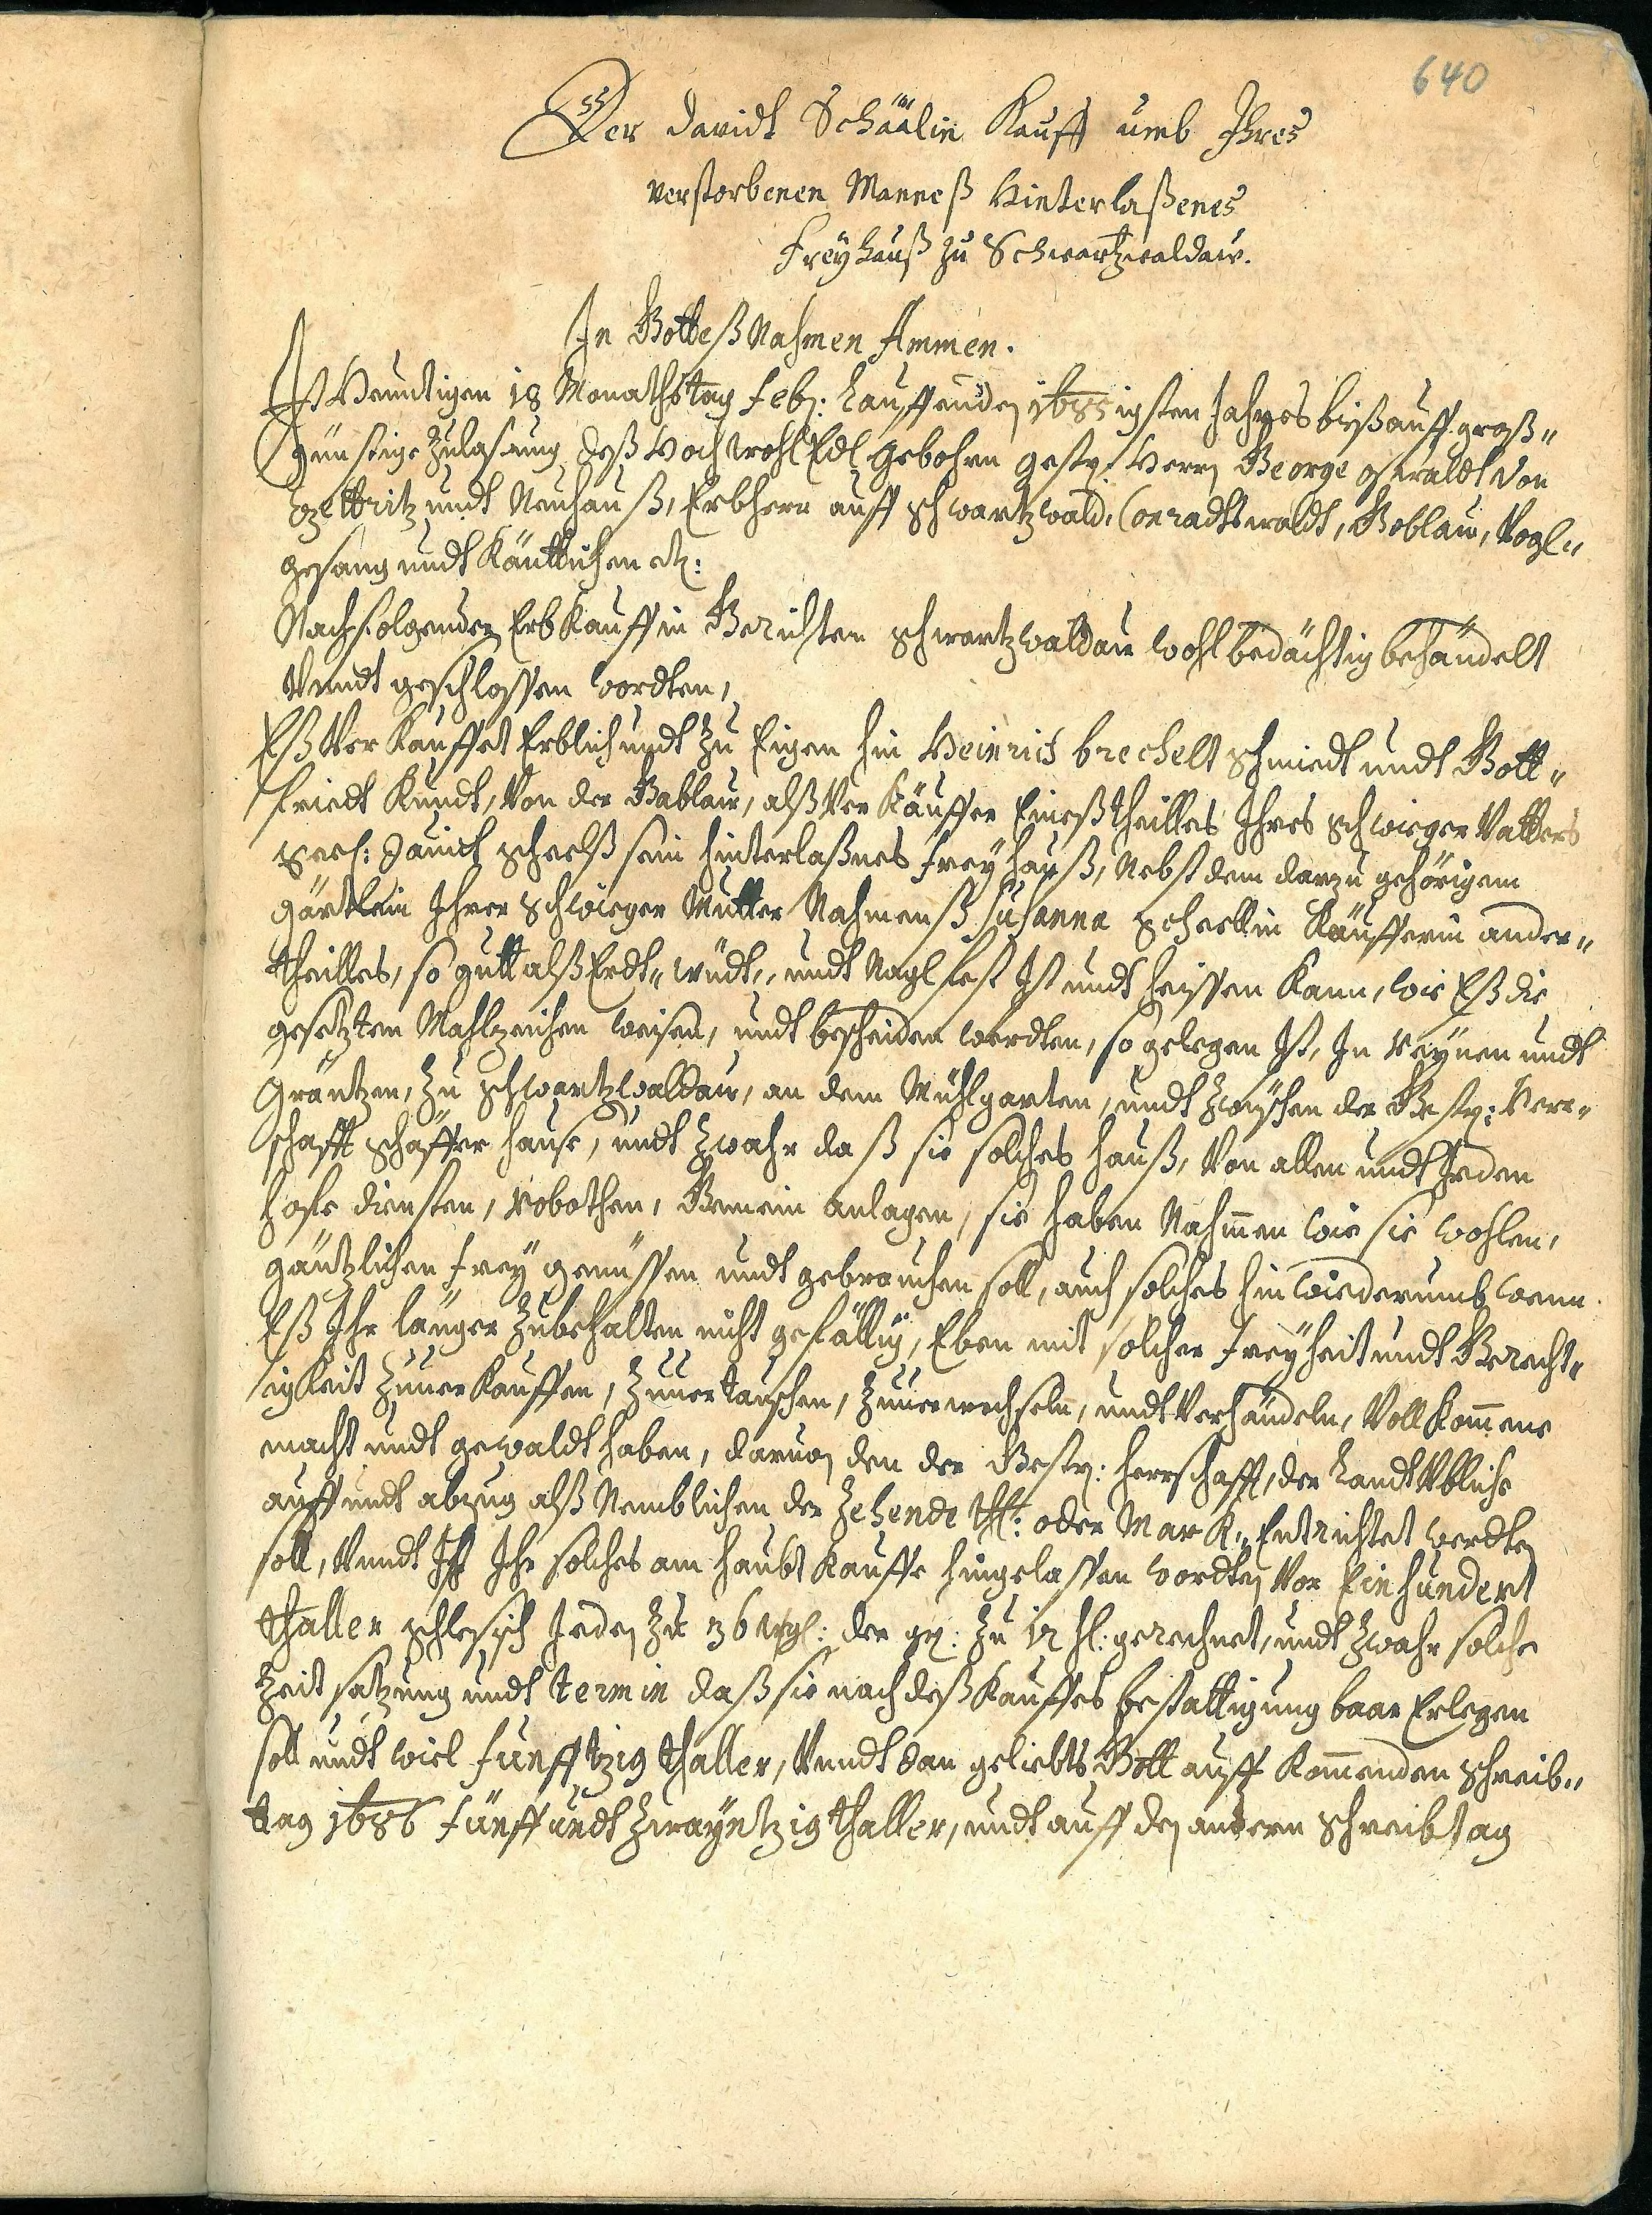 640
Der Davidt Schäälin Kauff umb Ihres
verstorbenen Manneß Hinterlaßenes
Freyhauß zu Schwartzwaldau.
In Gotteß Nahmen Ammen.
Ist Heundtigen 18 Monathstag Feb: Lauffenden 1685 igsten Jahres biß auff groß„
günstige Zulaßung deß Hoch Wohl Edl gebohren gestr: Herrn George Oswaldt von
Czettritz undt Neuhauß, Erbherr auff Schwartzwald, Conradtswaldt, Goblau, Vogl„
gesang undt Käuttichen etc:
Nachfolgender Erb Kauff in Gerichten Schwartzwaldau wohlbedächtig behandelt
Vnndt geschlossen wordten,
Eß Ver Kauffet Erblich undt zu Eigen hin Heinrich brechelt Schmiedt undt Gott„
friedt Kundt, Von der Gablau, alß Ver Käuffer Eineß theilles Ihres Schwieger Vatters
Seel: Davidt Scheelß sein hinterlaßnes Freyhauß, Nebst dem darzu gehörigem
gärtlein Ihrer Schwieger Mutter Nahmenß Susanna Scheelin Käufferin ander„
theilles, so gutt alß Erdt„ wüdt„ undt Nagl fest Ist undt heissen Kann, wie Eß die
gesetzten Mahlzeichen weisen, undt bescheiden werdten, so gelegen Ist, In Reynen undt
Gräntzen, zu Schwartzwaldau, an dem Mühlgarten, undt zwyschen der Gestr: Herr„
schafft Schäffer hause, undt zwahr daß sie solches hauß, Von allen undt Jeden
hofe diensten, Robothen, Gemein anlagen, sie haben Nahmen wie sie wohlen,
gäntzlichen frey genüssen undt gebrauchen soll, auch solches hin wiederumb wenn
Eß Ihr länger zubehalten nicht gefällig, Eben mit solcher Freyheit undt Gerecht„
igKeit zuuerKauffen, zuuertauschen, zuuerwechseln, undt Verhandeln, VollKommene
macht undt gewaldt haben, daruon den der Gestr: Herrschafft, der Landt Vbliche
auff undt abzug alß Nemblichen der Zehende thl: oder MarK„ Entrichtet werdten
soll, Vnndt Ist Ihr solches am haubt Kauffe hingelassen wordten Vor Einhundert
thaller Schlesisch Jeden zu 36 wgl: der gr: zu 12 hl: gerechnet, undt zwahr solche
Zeit satzung undt termin daß sie nach deß Kauffes bestattigung baar Erlegen
soll undt wiel Funfftzig thaller, Vnndt dan geliebts Gott auff Kommenden Schreib„
tag 1686 fünff undt Zwayntzig thaller, undt auff den andern Schreibtag